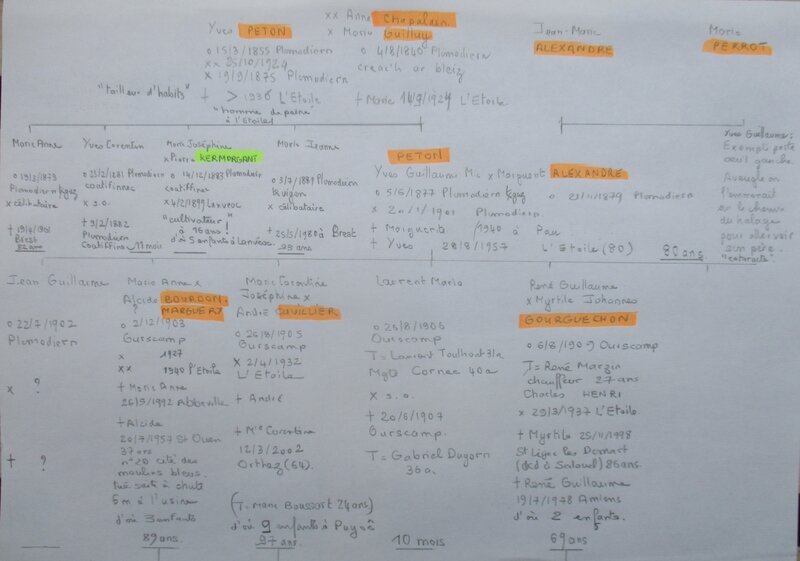 xx Anne Chapalain
Yves PETON x Marie Guillay
o 15/3/1855 Plomodiern o 4/8/1840 Plomodiern
xx 25/10/1924 creac'h ar bleiz
x 19/9/1875 Plomodiern
"tailleur d'habits" + > 1936 L'Etoile + Marie 14/9/1924 L'Etoile
"homme de peine
à l'Etoile"
Jean-Marie
ALEXANDRE
Marie
PERROT
Marie Anne
o 19/3/1879
Plomodiern
x célibataire
Brest
82 ans
Yves Corentin
o 23/2/1881 Plomodiern
coatifinnec
x s.o.
+ 9/2/1882
Plomodiern
Coatiffinec 11 mois
Marie Joséphine
x Pierre KERMORGANT
o 14/12/1883 Plomodiern
coatiffinec
x 4/2/1899 Lanveoc
"cultivateur"
à 16 ans!
d'où 5 enfants à Lanvéoc
Marie Jeanne
o 3/7/1889 Plomodiern
x célibataire
+ 25/5/1980 à Brest
PETON
Yves Guillaume Mic x Marguerit ALEXANDRE
o 5/6/1877 Plomodiern o 21/11/1879 Plomodiern
x 20/1/1901 Plomodiern
+ Marguerite 1940 à Pau
+ Yves 28/8/1957 L'Etoile (80) 80 ans
Yves Guillaume:
Exempt perte
oeil gauche
Aveugle on
l'emmenait
sur le chemin
du halage
pour aller voir
son père.
"cataracte"
Jean Guillaume
o 22/7/1902
Plomodiern
x ?
+ ?
Marie Anne x
Alcide BOURDON
MARGUERY
o 2/12/1903
Ourscamp
x 1927
xx 1940 l'Etoile
+ Marie Anne
26/5/1992 Abbeville
+ Alcide
20/7/1957 St Ouen
37 ans
n°20 cité des
moulins bleus.
tué suite à chute
5m à l'usine
d'où 3 enfants
89 ans
Marie Corentine
Joséphine x
André CUVILLIER
o 26/8/1905
Ourscamp
x 2/4/1932
L'Etoile
+ André
+ Mie Corentine
12/3/2002
Orthez (64).
(T = Marc Boussart 24 ans)
d'où 9 enfants à Puyoô
97 ans
Laurent Marie
o 26/8/1906
Ourscamp
T = Laurent Toulhoat 31a
MgD Cornec 40a
x s.o.
+ 20/6/1907
Ourscamp.
T = Gabriel Dagorn
36a.
10 mois
René Guillaume
x Myrtile Johannes
GOURGUECHON
o 6/8/1909 Ourscamp
T = René Marzin
chauffeur 27 ans
Charles HENRI
x 29/3/1937 L'Etoile
+ Myrtile 25/11/1998
St Léger les Domart
(dcd à Salouel) 86 ans
+ René Guillaume
19/7/1978 Amiens
d'où 2 enfants.
69 ans